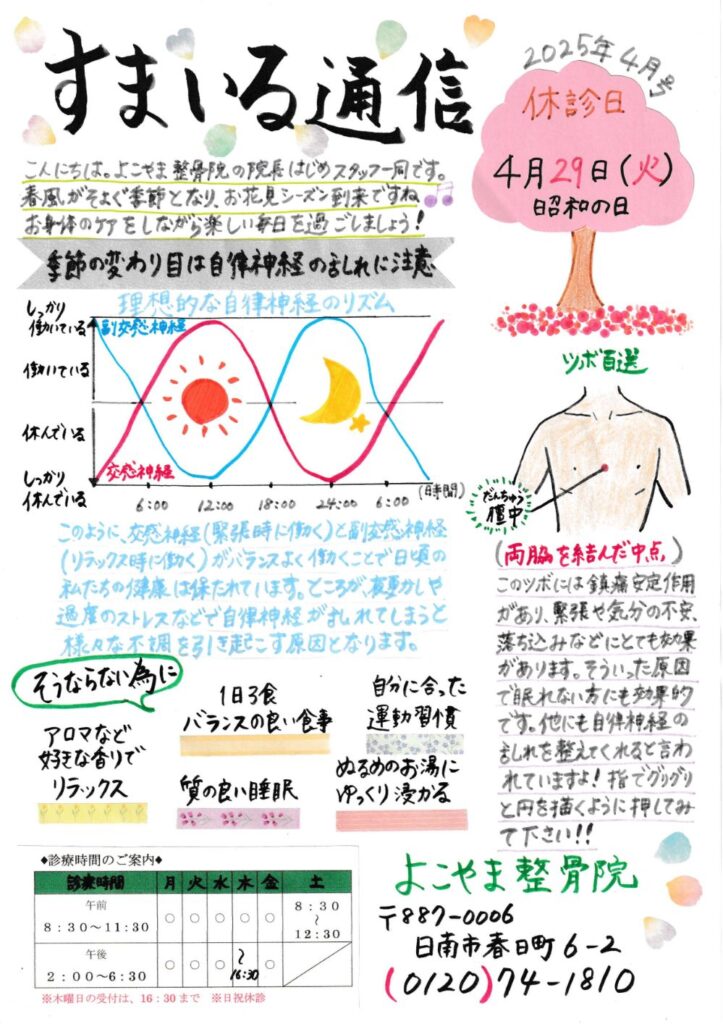 すまいる通信
2025年4月号
休診日
4月29日(火)
昭和の日
こんにちは。よこやま整骨院の院長はじめスタッフ一同です。
春風がそよぐ季節となり、お花見シーズン到来ですね♫
お身体のケアをしながら楽しい毎日を過ごしましょう!
季節の変わり目は自律神経の乱れに注意
理想的な自律神経のリズム
しっかり
働いている
働いている
休んでいる
しっかり
休んでいる
副交感神経
交感神経
6:00 12:00 18:00 24:00 6:00 (時間)
このように、交感神経(緊張時に働く)と副交感神経
(リラックス時に働く)がバランスよく働くことで日頃の
私たちの健康は保たれています。ところが、夜更かしや
過度のストレスなどで自律神経が乱れてしまうと
様々な不調を引き起こす原因となります。
ツボ百選
だんちゅう
膻中
(両脇を結んだ中点。)
このツボには鎮痛安定作用
があり、緊張や気分の不安、
落ち込みなどにとても効果
があります。そういった原因
で眠れない方にも効果的
です。他にも自律神経の
乱れを整えてくれると言わ
れていますよ!指でグリグリ
と円を描くように押してみ
て下さい!!
そうならない為に
アロマなど
好きな香りで
リラックス
1日3食
バランスの良い食事
自分に合った
運動習慣
質の良い睡眠
ぬるめのお湯に
ゆっくり浸かる
◆診療時間のご案内◆
診療時間 月 火 水 木 金 土
午前
8:30～11:30 ○ ○ ○ ○ ○ 8:30～12:30
午後
2:00～6:30 ○ ○ ○ ～16:30 ○
※木曜日の受付は、16:30まで ※日祝休診
よこやま整骨院
〒887-0006
日南市春日町6-2
(0120)74-1810